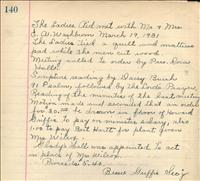 140
The Ladies Aid met with Mr & Mrs
E. A. Washburn March 19, 1931
The Ladies Tied a quilt and mattress
pad while the men cut wood.
Meeting called to order by Pres. Cora
Wells.
Scripture reading by Daisy Buck
91 Psalm followed by the Lord's Prayer
Reading of the minutes of the last meeting
Motion made and seconded that an order
for 20.00 be drawn in favor of
Griffin to pay on ministers salary, also
1.00 to pay Bert Hatt for plant given
Mrs Wilson.
Gladys Hall was appointed to act
in place of Mrs Wilson.
Proceeds 5.40.
Griffin Sec'y